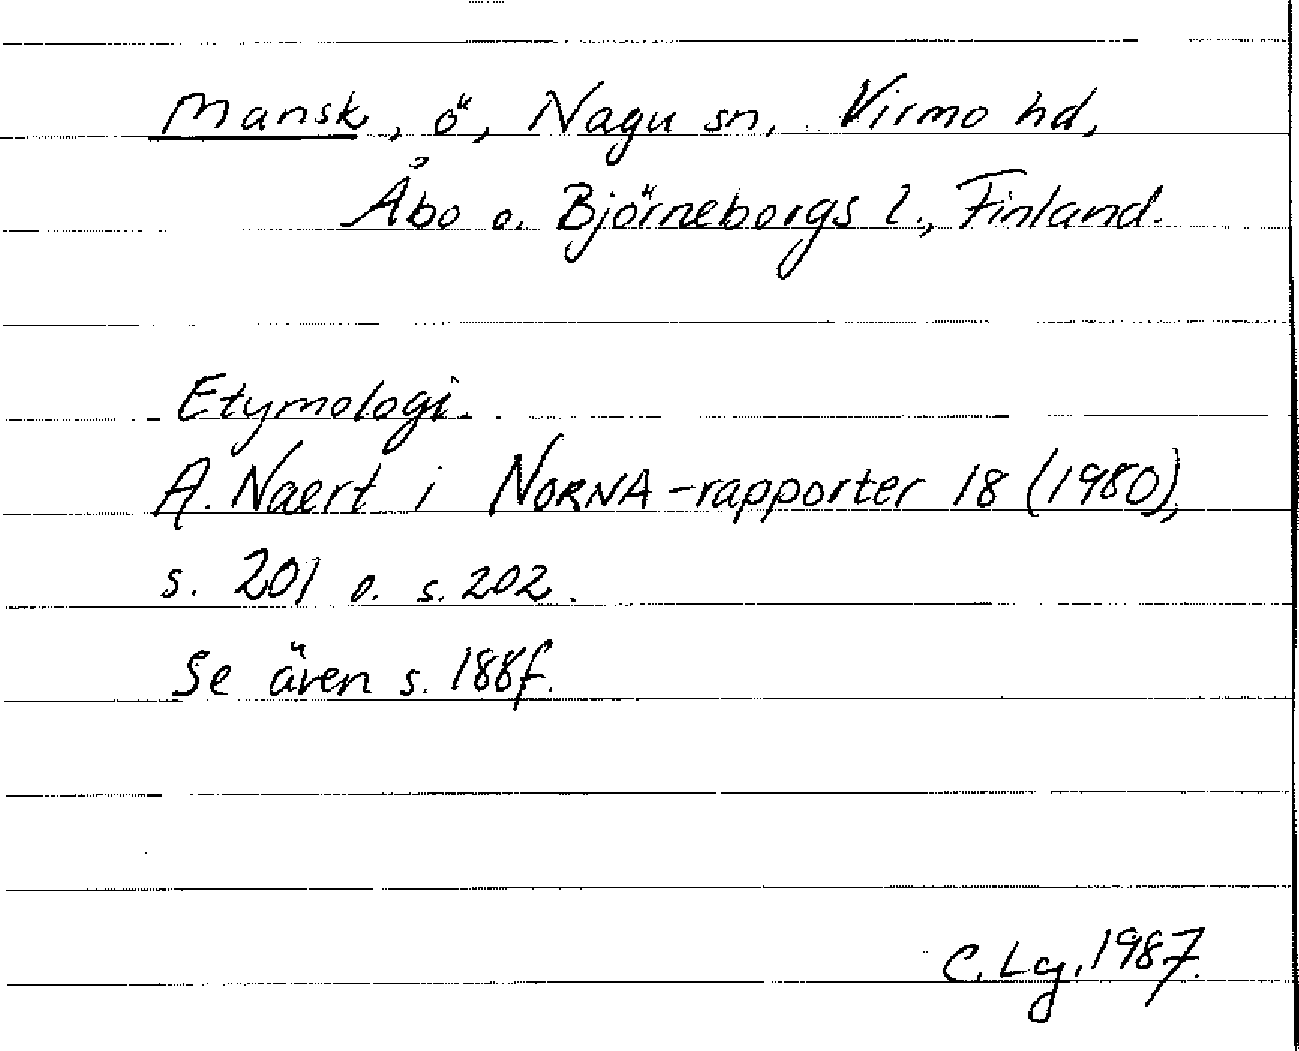 Mansk, ö, Nagu sn, Virmo hd,
Åbo o. Björneborgs l., Finland.
Etymologi.
A. Naert i NORNA-rapporter 18 (1980),
s. 201 o. s. 202.
Se även s. 188f.
C. Lg. 1987.